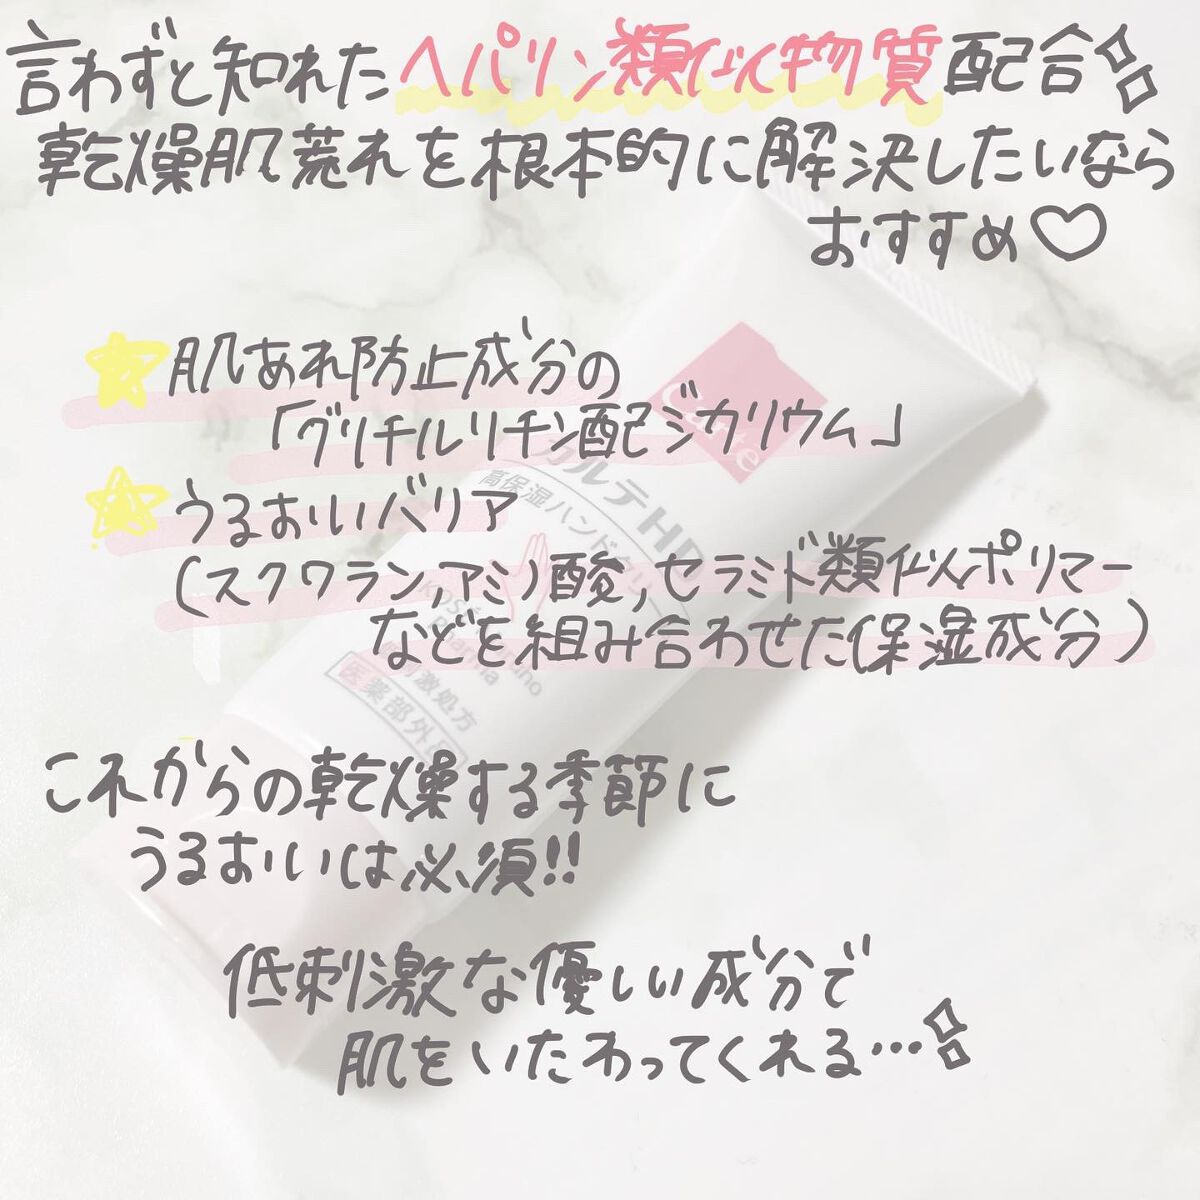 言わずと知れたヘパリン類似物質配合
乾燥肌荒れを根本的に解決したいなら
おすすめ♡
肌あれ防止成分の
「グリチルリチン酸ジカリウム」
うるおいバリア
(スクワラン,アミノ酸,セラミド類似ポリマー
などを組み合わせた保湿成分)
これからの乾燥する季節に
うるおいは必須!!
低刺激な優しい成分で
肌をいたわってくれる…
Carté
カルテHD
高保湿ハンドクリーム
医薬部外品